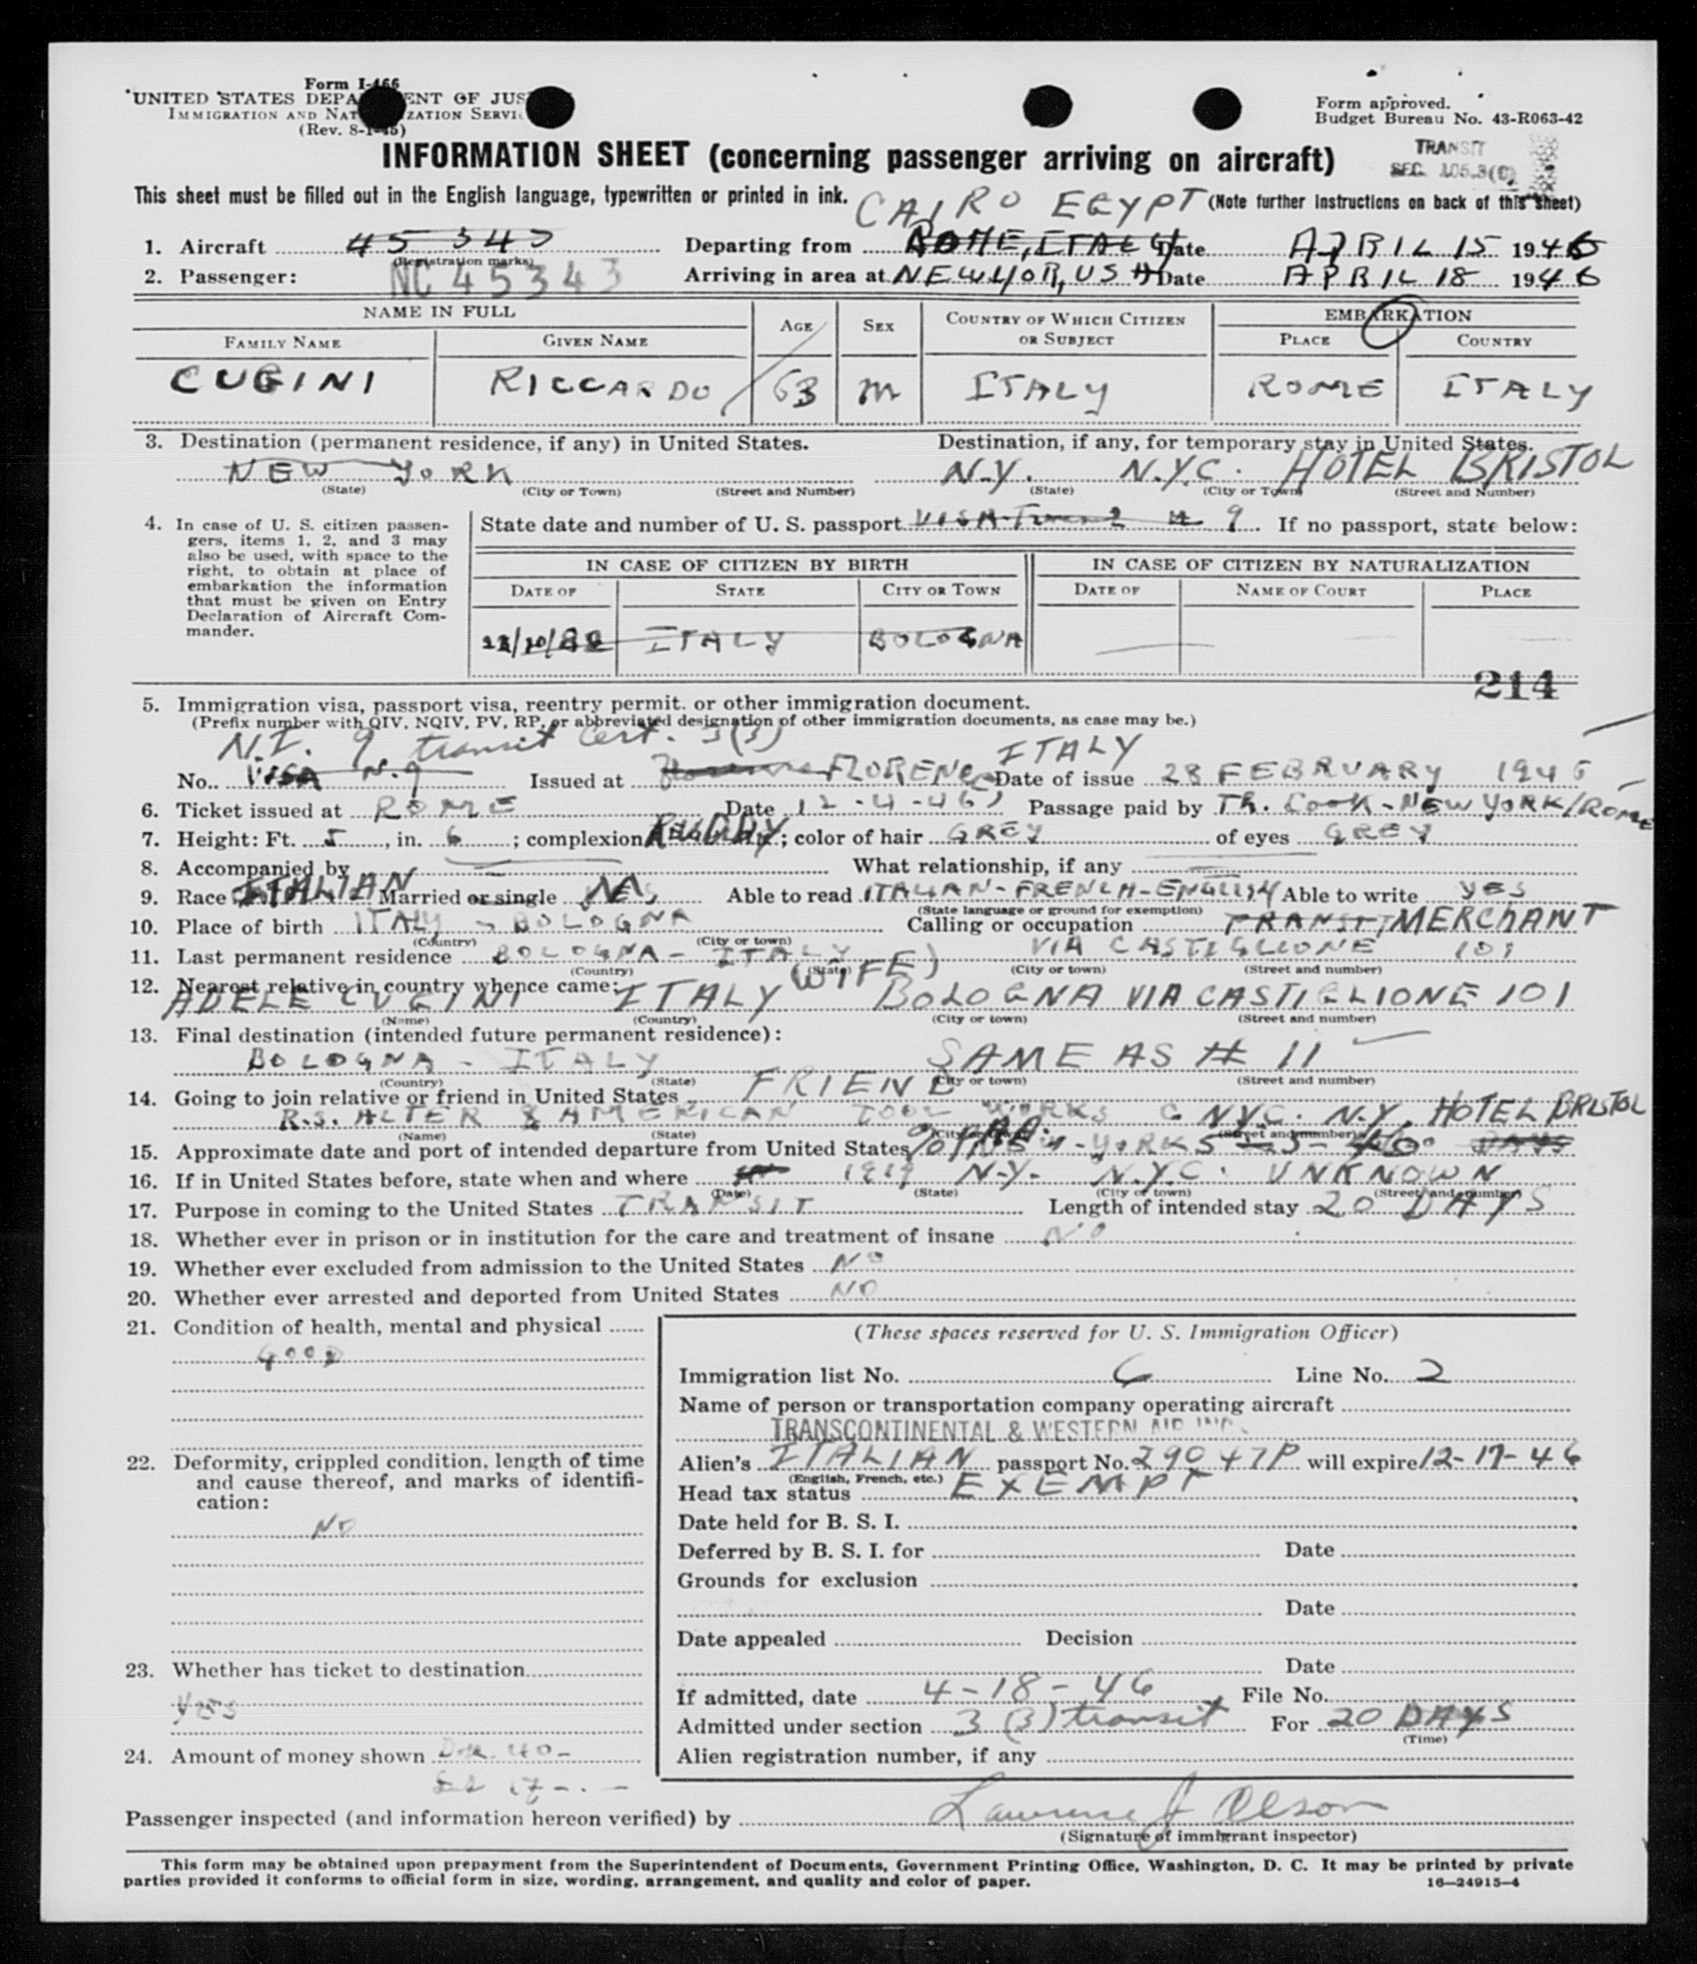 Form I-466
UNITED STATES DEPARTMENT OF JUSTICE
IMMIGRATION AND NATURALIZATION SERVICE
(Rev. 8-1-45)
Form approved.
Budget Bureau No. 43-R063-42
INFORMATION SHEET (concerning passenger arriving on aircraft)
TRANSIT
SEC. 105.3(C)
This sheet must be filled out in the English language, typewritten or printed in ink. CAIRO EGYPT (Note further instructions on back of this sheet)
1. Aircraft 45343 Departing from ROME, ITALY Date APRIL 15 1946
(Registration marks)
2. Passenger: NC 45343 Arriving in area at NEW YOR, USA Date APRIL 18 1946
NAME IN FULL AGE SEX COUNTRY OF WHICH CITIZEN OR SUBJECT EMBARKATION
FAMILY NAME GIVEN NAME PLACE COUNTRY
CUGINI RICCARDO 63 M ITALY ROME ITALY
3. Destination (permanent residence, if any) in United States. Destination, if any, for temporary stay in United States.
NEW YORK N.Y. N.Y.C. HOTEL BRISTOL
(State) (City or Town) (Street and Number) (State) (City or Town) (Street and Number)
4. In case of U. S. citizen passengers, items 1, 2, and 3 may also be used, with space to the right, to obtain at place of embarkation the information that must be given on Entry Declaration of Aircraft Commander.
State date and number of U. S. passport VISA # 9 If no passport, state below:
IN CASE OF CITIZEN BY BIRTH IN CASE OF CITIZEN BY NATURALIZATION
DATE OF STATE CITY OR TOWN DATE OF NAME OF COURT PLACE
ITALY BOLOGNA
214
5. Immigration visa, passport visa, reentry permit, or other immigration document.
(Prefix number with QIV, NQIV, PV, RP, or abbreviated designation of other immigration documents, as case may be.)
N.I. 9 transit cert. 3(3) ITALY
No. VISA N.9 Issued at Florence FLORENCE Date of issue 28 FEBRUARY 1946
6. Ticket issued at ROME Date 12-4-46 Passage paid by Th. Cook - NEW YORK/ROME
7. Height: Ft. 5, in. 6; complexion RUDDY; color of hair GREY of eyes GREY
8. Accompanied by — What relationship, if any —
9. Race ITALIAN Married or single YES Able to read ITALIAN-FRENCH-ENGLISH Able to write YES
(State language or ground for exemption)
10. Place of birth ITALY - BOLOGNA Calling or occupation TRANSIT, MERCHANT
(Country) (City or town)
11. Last permanent residence BOLOGNA - ITALY VIA CASTIGLIONE 101
(Country) (State) (City or town) (Street and number)
12. Nearest relative in country whence came: (WIFE)
ADELE CUGINI ITALY BOLOGNA VIA CASTIGLIONE 101
(Name) (Country) (City or town) (Street and number)
13. Final destination (intended future permanent residence):
BOLOGNA - ITALY SAME AS # 11
(Country) (State) (City or town) (Street and number)
14. Going to join relative or friend in United States FRIEND
R.S. ALTER & AMERICAN TOOL WORKS C. NYC. N.Y. HOTEL BRISTOL
(Name) (State) (City or town) (Street and number)
15. Approximate date and port of intended departure from United States
16. If in United States before, state when and where 1919 N.Y. N.Y.C. UNKNOWN
(Date) (State) (City or town) (Street and number)
17. Purpose in coming to the United States TRANSIT Length of intended stay 20 DAYS
18. Whether ever in prison or in institution for the care and treatment of insane NO
19. Whether ever excluded from admission to the United States NO
20. Whether ever arrested and deported from United States NO
21. Condition of health, mental and physical
GOOD
22. Deformity, crippled condition, length of time and cause thereof, and marks of identification:
NO
23. Whether has ticket to destination
YES
24. Amount of money shown
(These spaces reserved for U. S. Immigration Officer)
Immigration list No. 6 Line No. 2
Name of person or transportation company operating aircraft
TRANSCONTINENTAL & WESTERN AIR INC.
Alien's ITALIAN passport No. 29047P will expire 12-17-46
(English, French, etc.)
Head tax status EXEMPT
Date held for B. S. I.
Deferred by B. S. I. for Date
Grounds for exclusion
Date
Date appealed Decision
Date
If admitted, date 4-18-46 File No.
Admitted under section 3 (3) transit For 20 DAYS
(Time)
Alien registration number, if any
Passenger inspected (and information hereon verified) by Lawrence J Olson
(Signature of immigrant inspector)
This form may be obtained upon prepayment from the Superintendent of Documents, Government Printing Office, Washington, D. C. It may be printed by private
parties provided it conforms to official form in size, wording, arrangement, and quality and color of paper.
16—24915-4